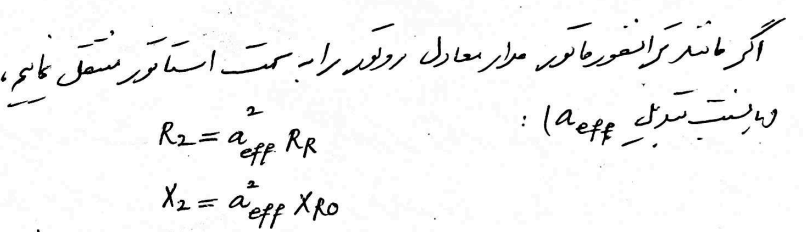 اگر مانند ترانسفورماتور مدار معادل روتور را به سمت استاتور منتقل نماییم،
نسبت تبدیل a_eff) :
R₂ = a²_eff R_R
X₂ = a²_eff X_R0